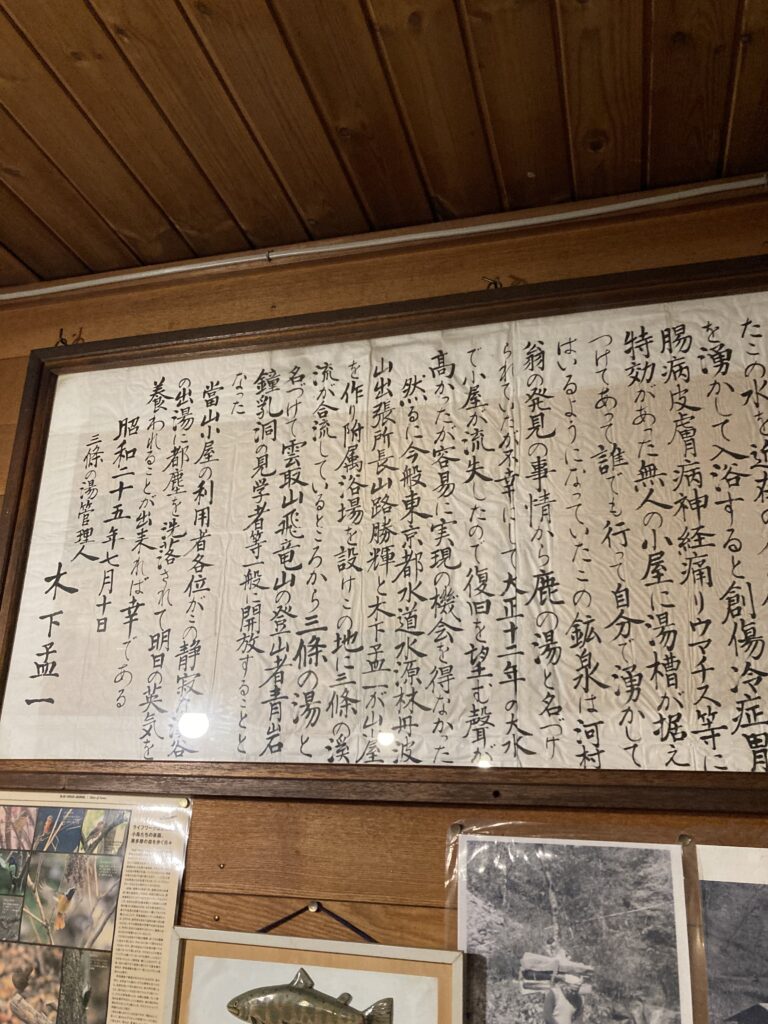 たこの水を
を湧かして入浴すると創傷冷症胃
腸病皮膚病神経痛リウマチス等に
特効があった無人の小屋に湯槽が据え
つけてあって誰でも行って自分で湧かして
はいるようになっていたこの鉱泉は河村
翁の発見の事情から鹿の湯と名づけ
られていたが不幸にして大正十二年の大水
で小屋が流失したので復旧を望む聲が
高かったが容易に実現の機会を得なかった
然るに今般東京都水道水源林丹波
山出張所長山路勝輝と木下孟一が山屋
を作り附属浴場を設けこの地に三條の溪
流が合流しているところから三條の湯と
名づけて雲取山飛竜山の登山者青岩
鐘乳洞の見学者等一般に開放することと
なった
當山小屋の利用者各位がこの静寂な渓谷
の出湯に都塵を洗落されて明日の英気を
養われることが出来れば幸である
昭和二十五年七月十日
三條の湯管理人
木下孟一
ライフワークは
小鳥たちの楽園、
奥多摩の森を歩く